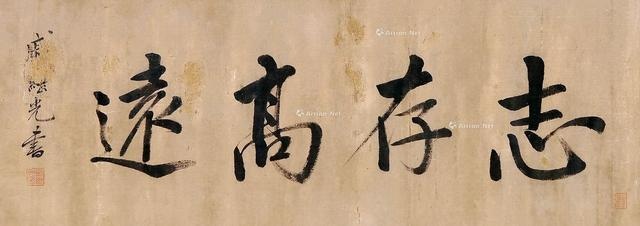 志存高遠
戚繼光書
Artron.Net
Artron.Net
Artron.Net